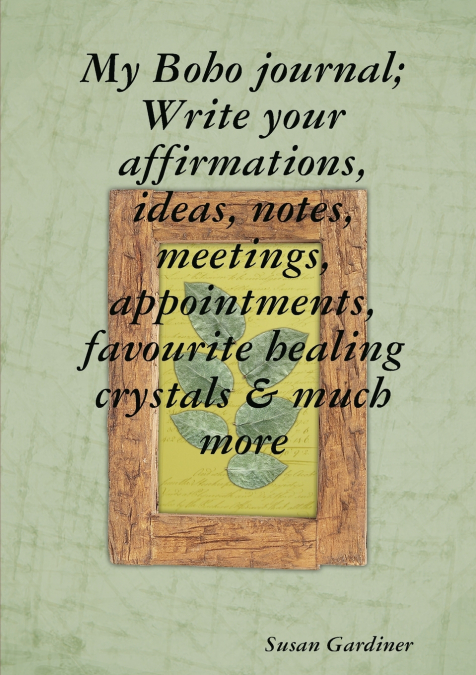 My Boho journal;
Write your
affirmations,
ideas, notes,
meetings,
appointments,
favourite healing
crystals & much
more
Susan Gardiner